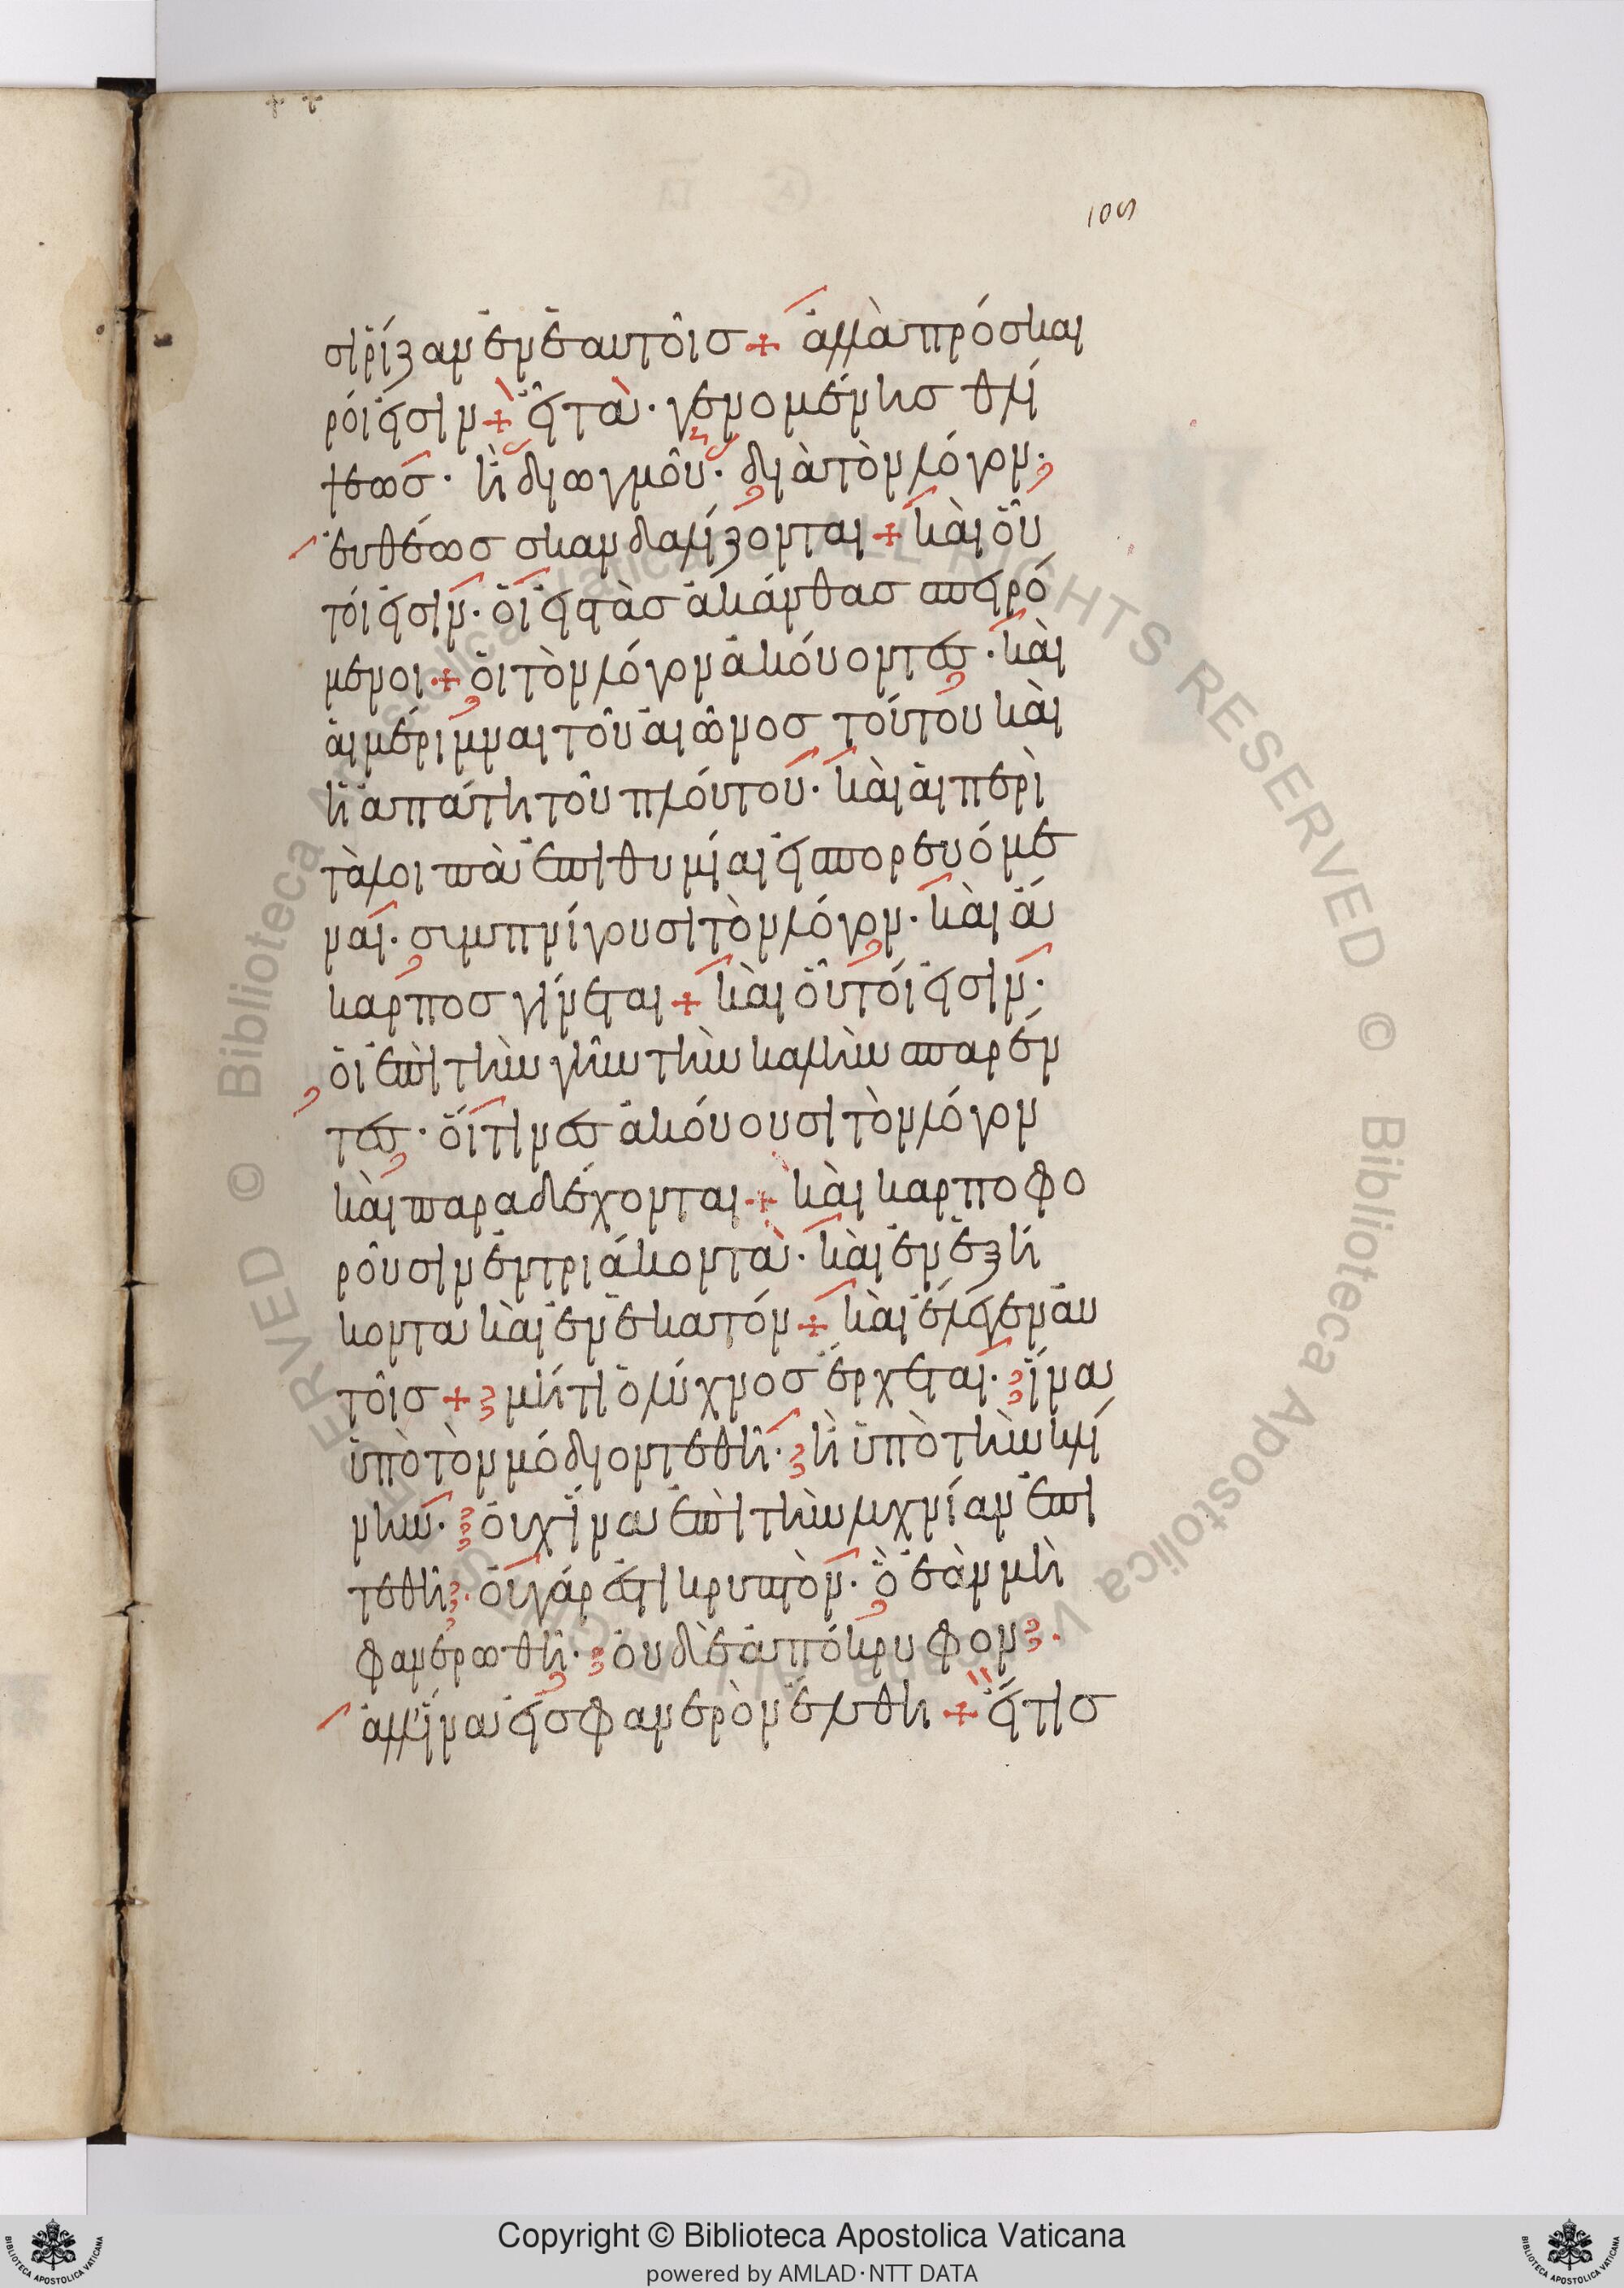 109
σι ῥίζαν ἐν ἑαυτοῖς + ἀλλὰ πρόσκαι
ροί εἰσιν + εἶτα · γενομένης θλί
ψεως · ἢ διωγμοῦ · διὰ τὸν λόγον ·
εὐθέως σκανδαλίζονται + καὶ οὗ
τοί εἰσιν · οἱ εἰς τὰς ἀκάνθας σπειρό
μενοι + οἱ τὸν λόγον ἀκούοντες · καὶ
αἱ μέριμναι τοῦ αἰῶνος τούτου καὶ
ἡ ἀπάτη τοῦ πλούτου · καὶ αἱ περὶ
τὰ λοιπὰ ἐπιθυμίαι εἰσπορευόμε
ναι · συμπνίγουσι τὸν λόγον · καὶ ἄ
καρπος γίνεται + καὶ οὗτοί εἰσιν ·
οἱ ἐπὶ τὴν γῆν τὴν καλὴν σπαρέν
τες · οἵτινες ἀκούουσι τὸν λόγον
καὶ παραδέχονται + καὶ καρποφο
ροῦσιν ἓν τριάκοντα · καὶ ἓν ἑξή
κοντα καὶ ἓν ἑκατόν + καὶ ἔλεγεν αὐ
τοῖς + μήτι ὁ λύχνος ἔρχεται · ἵνα
ὑπὸ τὸν μόδιον τεθῆ · ἢ ὑπὸ τὴν κλί
νην · οὐχ ἵνα ἐπὶ τὴν λυχνίαν ἐπι
τεθῆ · οὐ γάρ ἐστι κρυπτὸν · ὃ ἐὰν μὴ
φανερωθῆ · οὐδὲ ἀπόκρυφον ·
ἀλλ' ἵνα εἰς φανερὸν ἔλθη + εἴ τις
Copyright © Biblioteca Apostolica Vaticana
powered by AMLAD·NTT DATA